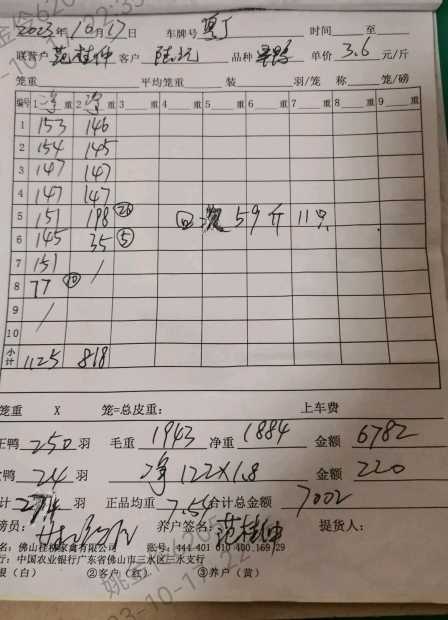 2023年10月17日 车牌号 夏丁 时间 至
联营户 范桂仲 客户 陆记 品种 单价 3.6 元/斤
笼重 平均笼重 装 羽/笼 称 笼/磅
编号 1 净 重 2 净 重 3 重 4 重 5 重 6 重 7 重 8 重 9 重
1 153 146
2 154 145
3 147 147
4 147 147
5 151 198 20 回 59斤 11只
6 145 35 5
7 151 /
8 77 10
9 /
10
小计 1125 818
笼重 X 笼=总皮重: 上车费
正鸭 250 羽 毛重 1943 净重 1884 金额 6782
鸭 24 羽 净 122×1.8 金额 220
计 274 羽 正品均重 7.54 合计总金额 7002
磅员: 养户签名: 范桂仲 提货人:
名: 佛山桂柳家禽有限公司 账号: 444 401 010 400 169 29
行: 中国农业银行广东省佛山市三水区三水支行
根(白) ②客户(红) ③养户(黄)